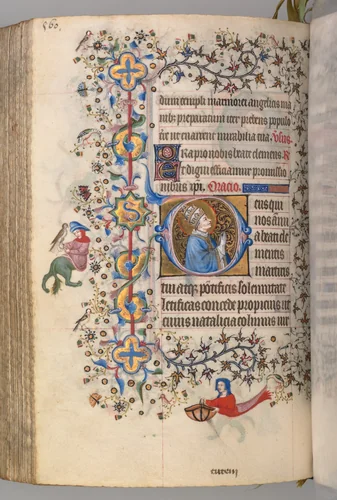 dium templi marmorei angelicis ma
nibz preparatum iter prebens populo
ut enarrent mirabilia tua Vſus
Ora pro nobis beate clemens R
Et digni efficiamur promiſſio
nibus xpi. Oracio.
eus qui
nos ānu
a beati cle
mentis
martiris
tui atqz pōtificis ſolemnitate
letificas concede propicius ut
cuius natalicia colimus uir